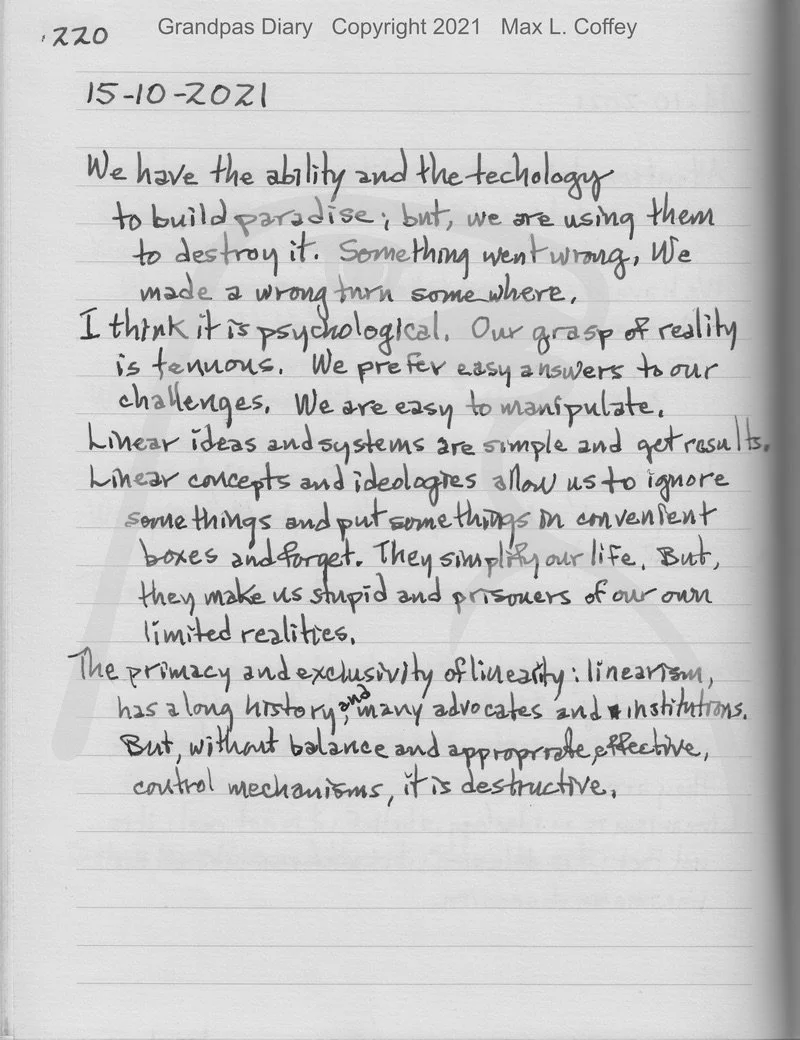 220
Grandpas Diary Copyright 2021 Max L. Coffey
15-10-2021
We have the ability and the techology
to build paradise; but, we are using them
to destroy it. Something went wrong, We
made a wrong turn somewhere.
I think it is psychological. Our grasp of reality
is tenuous. We prefer easy answers to our
challenges. We are easy to manipulate.
Linear ideas and systems are simple and get results.
Linear concepts and ideologies allow us to ignore
some things and put some things in convenient
boxes and forget. They simplify our life. But,
they make us stupid and prisoners of our own
limited realities.
The primacy and exclusivity of linearity: linearism,
has a long history, and many advocates and institutions.
But, without balance and appropriate, effective,
control mechanisms, it is destructive.